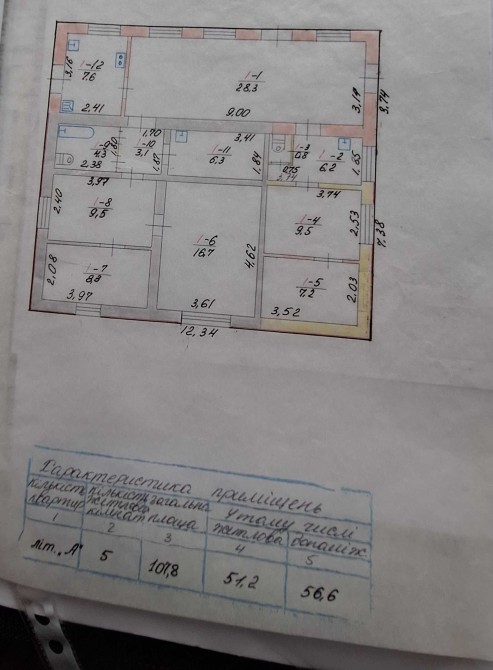 1-12
7.6
3,16
2.41
1-1
28.3
9.00
3,14
3,74
1-9
4.3
2.38
1,80
1,70
1-10
3,1
1,87
1-11
6.3
3,41
1,84
1-3
0.8
0,75
1-2
6.2
1,65
3,97
2,40
1-8
9,5
1-6
16,7
4,62
3,61
3,74
1-4
9.5
2,53
7,38
2,08
1-7
3,97
1-5
7,2
2,03
3,52
12,34
Характеристика приміщень
кількість квартир
кількість житлових кімнат
загальна площа
У тому числі
житлова
допоміж
1 2 3 4 5
літ. „А" 5 107,8 51,2 56,6